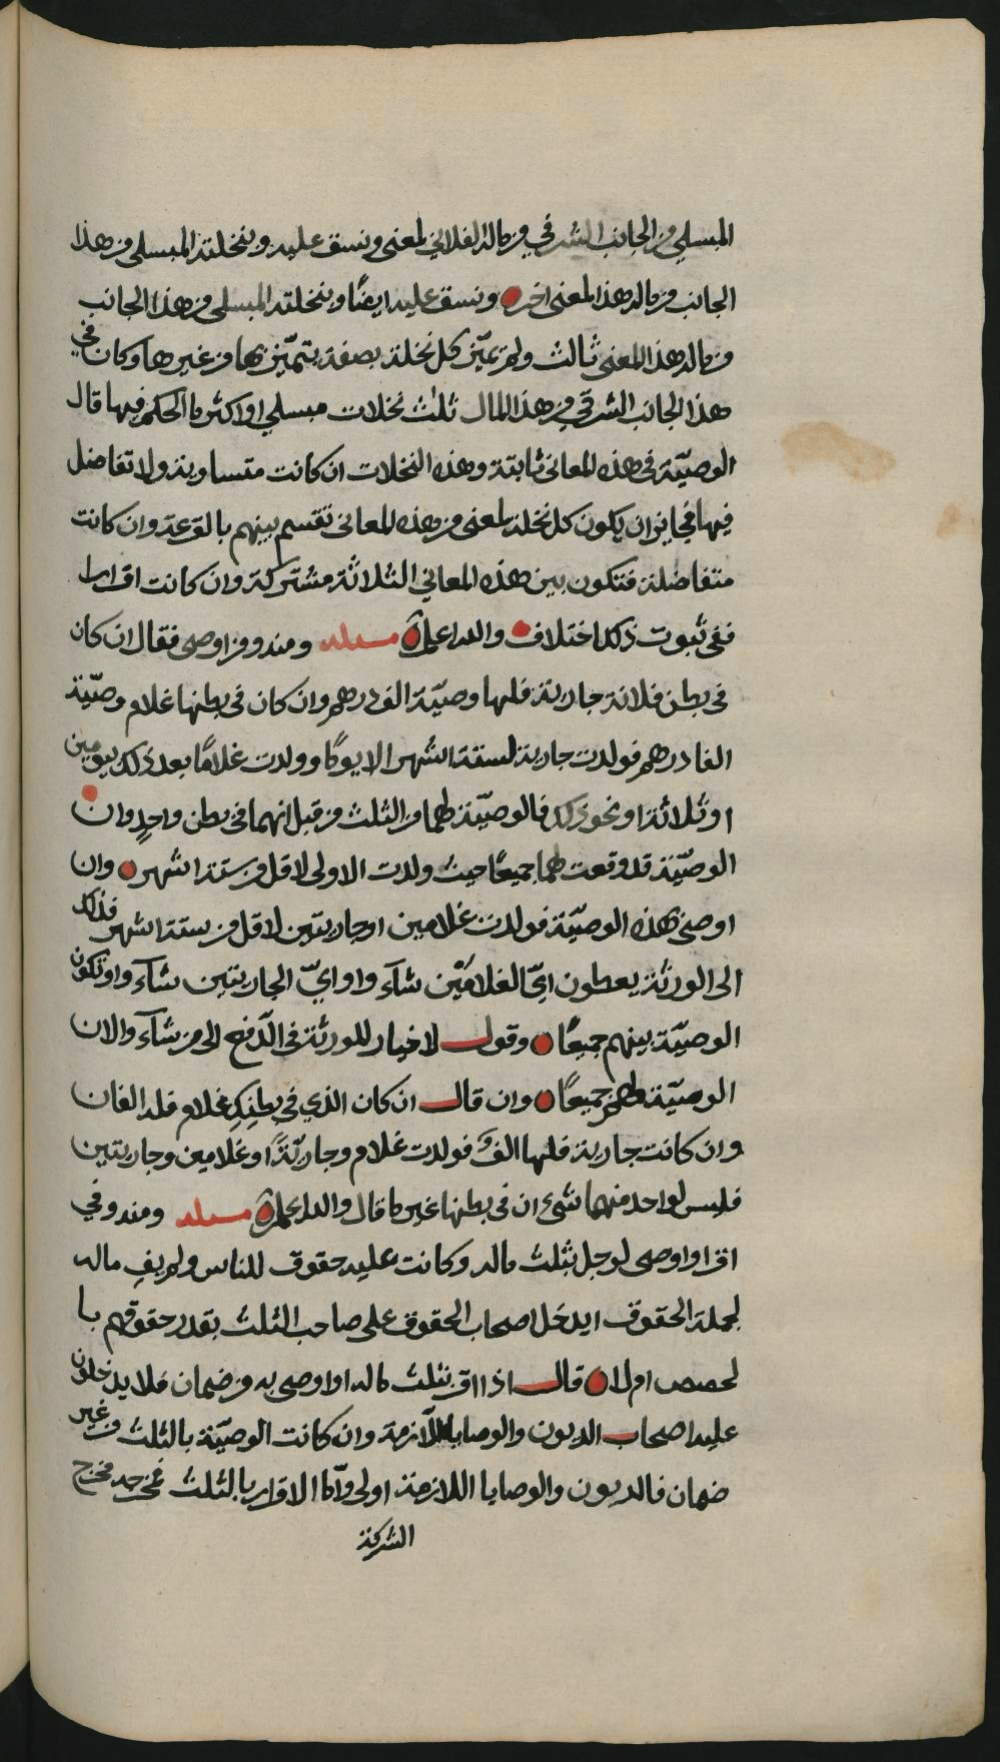 المبسلي من الجانب الشرقي من ماله الفلاني لمعنى ونسق عليه وبنخلته المبسلي من هذا
الجانب من ماله هذا لمعنى اخر ونسق عليه ايضًا وبنخلته المبسلي من هذا الجانب
من ماله هذا لمعنى ثالث ولم يميّز كل نخلة بصفة يتميّز بها من غيرها وكان في
هذا الجانب الشرقي من هذا المال ثلث نخلات مبسلي او اكثر ما الحكم فيها قال
الوصيّة في هذه المعاني ثابتة وهذه النخلات ان كانت متساوية ولا تفاضل
فيها فجايز ان يكون كل نخلة لمعنى من هذه المعاني تقسم بينهم بالقرعة وان كانت
متفاضلة فتكون بين هذه المعاني الثلاثة مشتركة وان كانت اقرارا
ففي ثبوت ذلك اختلاف والله اعلم مسئلة ومنه ومن اوصى فقال ان كان
في بطن فلانة جارية فلها وصيّة الف درهم وان كان في بطنها غلام وصيّة
الفا درهم فولدت جارية لستة اشهر الا يومًا وولدت غلامًا بعد ذلك بيومين
او ثلاثة او نحو ذلك فالوصيّة لهما من الثلث من قبل انهما في بطن واحدٍ وان
الوصيّة قد وقعت لهما جميعًا حيث ولدت الاولى لاقل من ستة اشهر وان
اوصى بهذه الوصيّة فولدت غلامين او جاريتين لاقل من ستة اشهر فذلك
الى الورثة يعطون ايّ الغلامَين شآءوا او ايّ الجاريتين شآءوا وتكون
الوصيّة بينهم جميعًا وقول لا خيار للورثة في الدّفع الى من شآءوا لان
الوصيّة لهم جميعًا وان قال ان كان الذي في بطنِكِ غلام فله الفان
وان كانت جارية فلها الفٌ فولدت غلام وجاريّةً او غلامين وجاريتين
فليس لواحد منهما شيء ان في بطنها غير ما قال والله اعلم مسئلة ومنه وفي
اقر او اوصى لرجل بثلث ماله وكانت عليه حقوق للناس ولم يفِ ماله
لجملة الحقوق ايدخل اصحاب الحقوق على صاحب الثلث بقدر حقوقهم با
لحصص ام لا قال اذا اقر بثلث ماله او اوصى به من ضمان فلا يدخلون
عليه اصحاب الديون والوصايا اللّازمة وان كانت الوصيّة بالثلث من غير
ضمان فالديون والوصايا اللازمة اولى وامّا الاقرار بالثلث مخرجه مخرج
الشركة